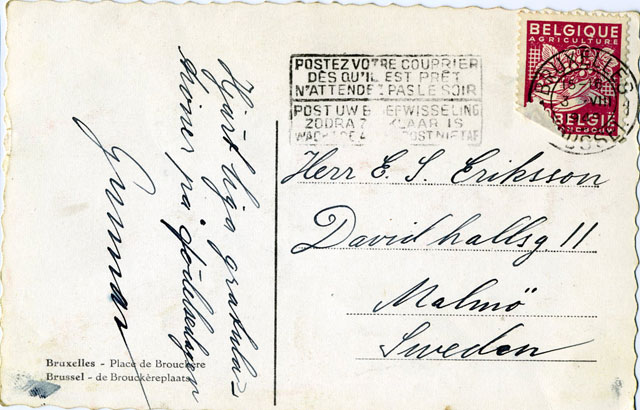 BELGIQUE
AGRICULTURE
BELGIË
BRUXELLES
VIII
POSTEZ VOTRE COURRIER
DÈS QU'IL EST PRÊT
N'ATTENDEZ PAS LE SOIR
POST UW BRIEFWISSELING
ZODRA ZE KLAAR IS
Hjärtliga gratula=
tioner på födelsedagen
Gunnar
Herr E. S. Eriksson
Davidhallsg 11
Malmö
Sweden
Bruxelles - Place de Brouckère
Brussel - de Brouckèreplaats